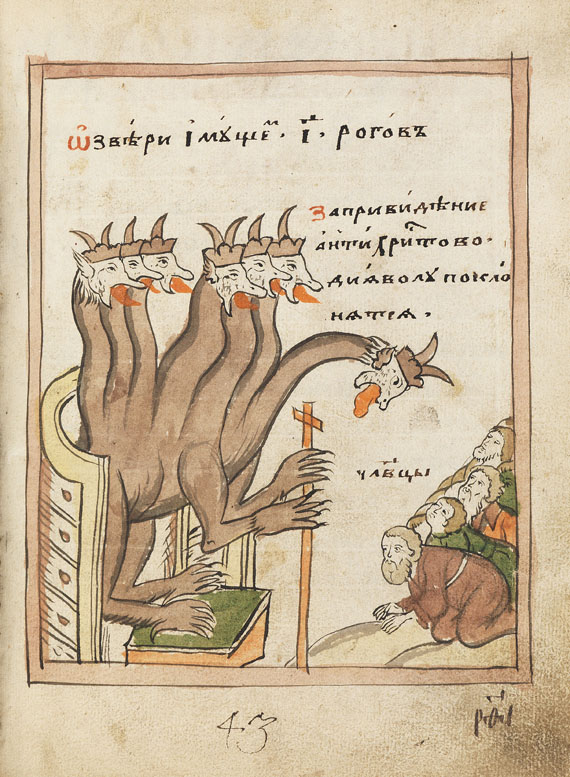 Ѡ звѣри імꙋщеᷟ. І҃. роговъ
За привидѣние
антихрⷭ҇тово.
диѧволꙋ покло
нѧтсѧ.
члв҃цы
43